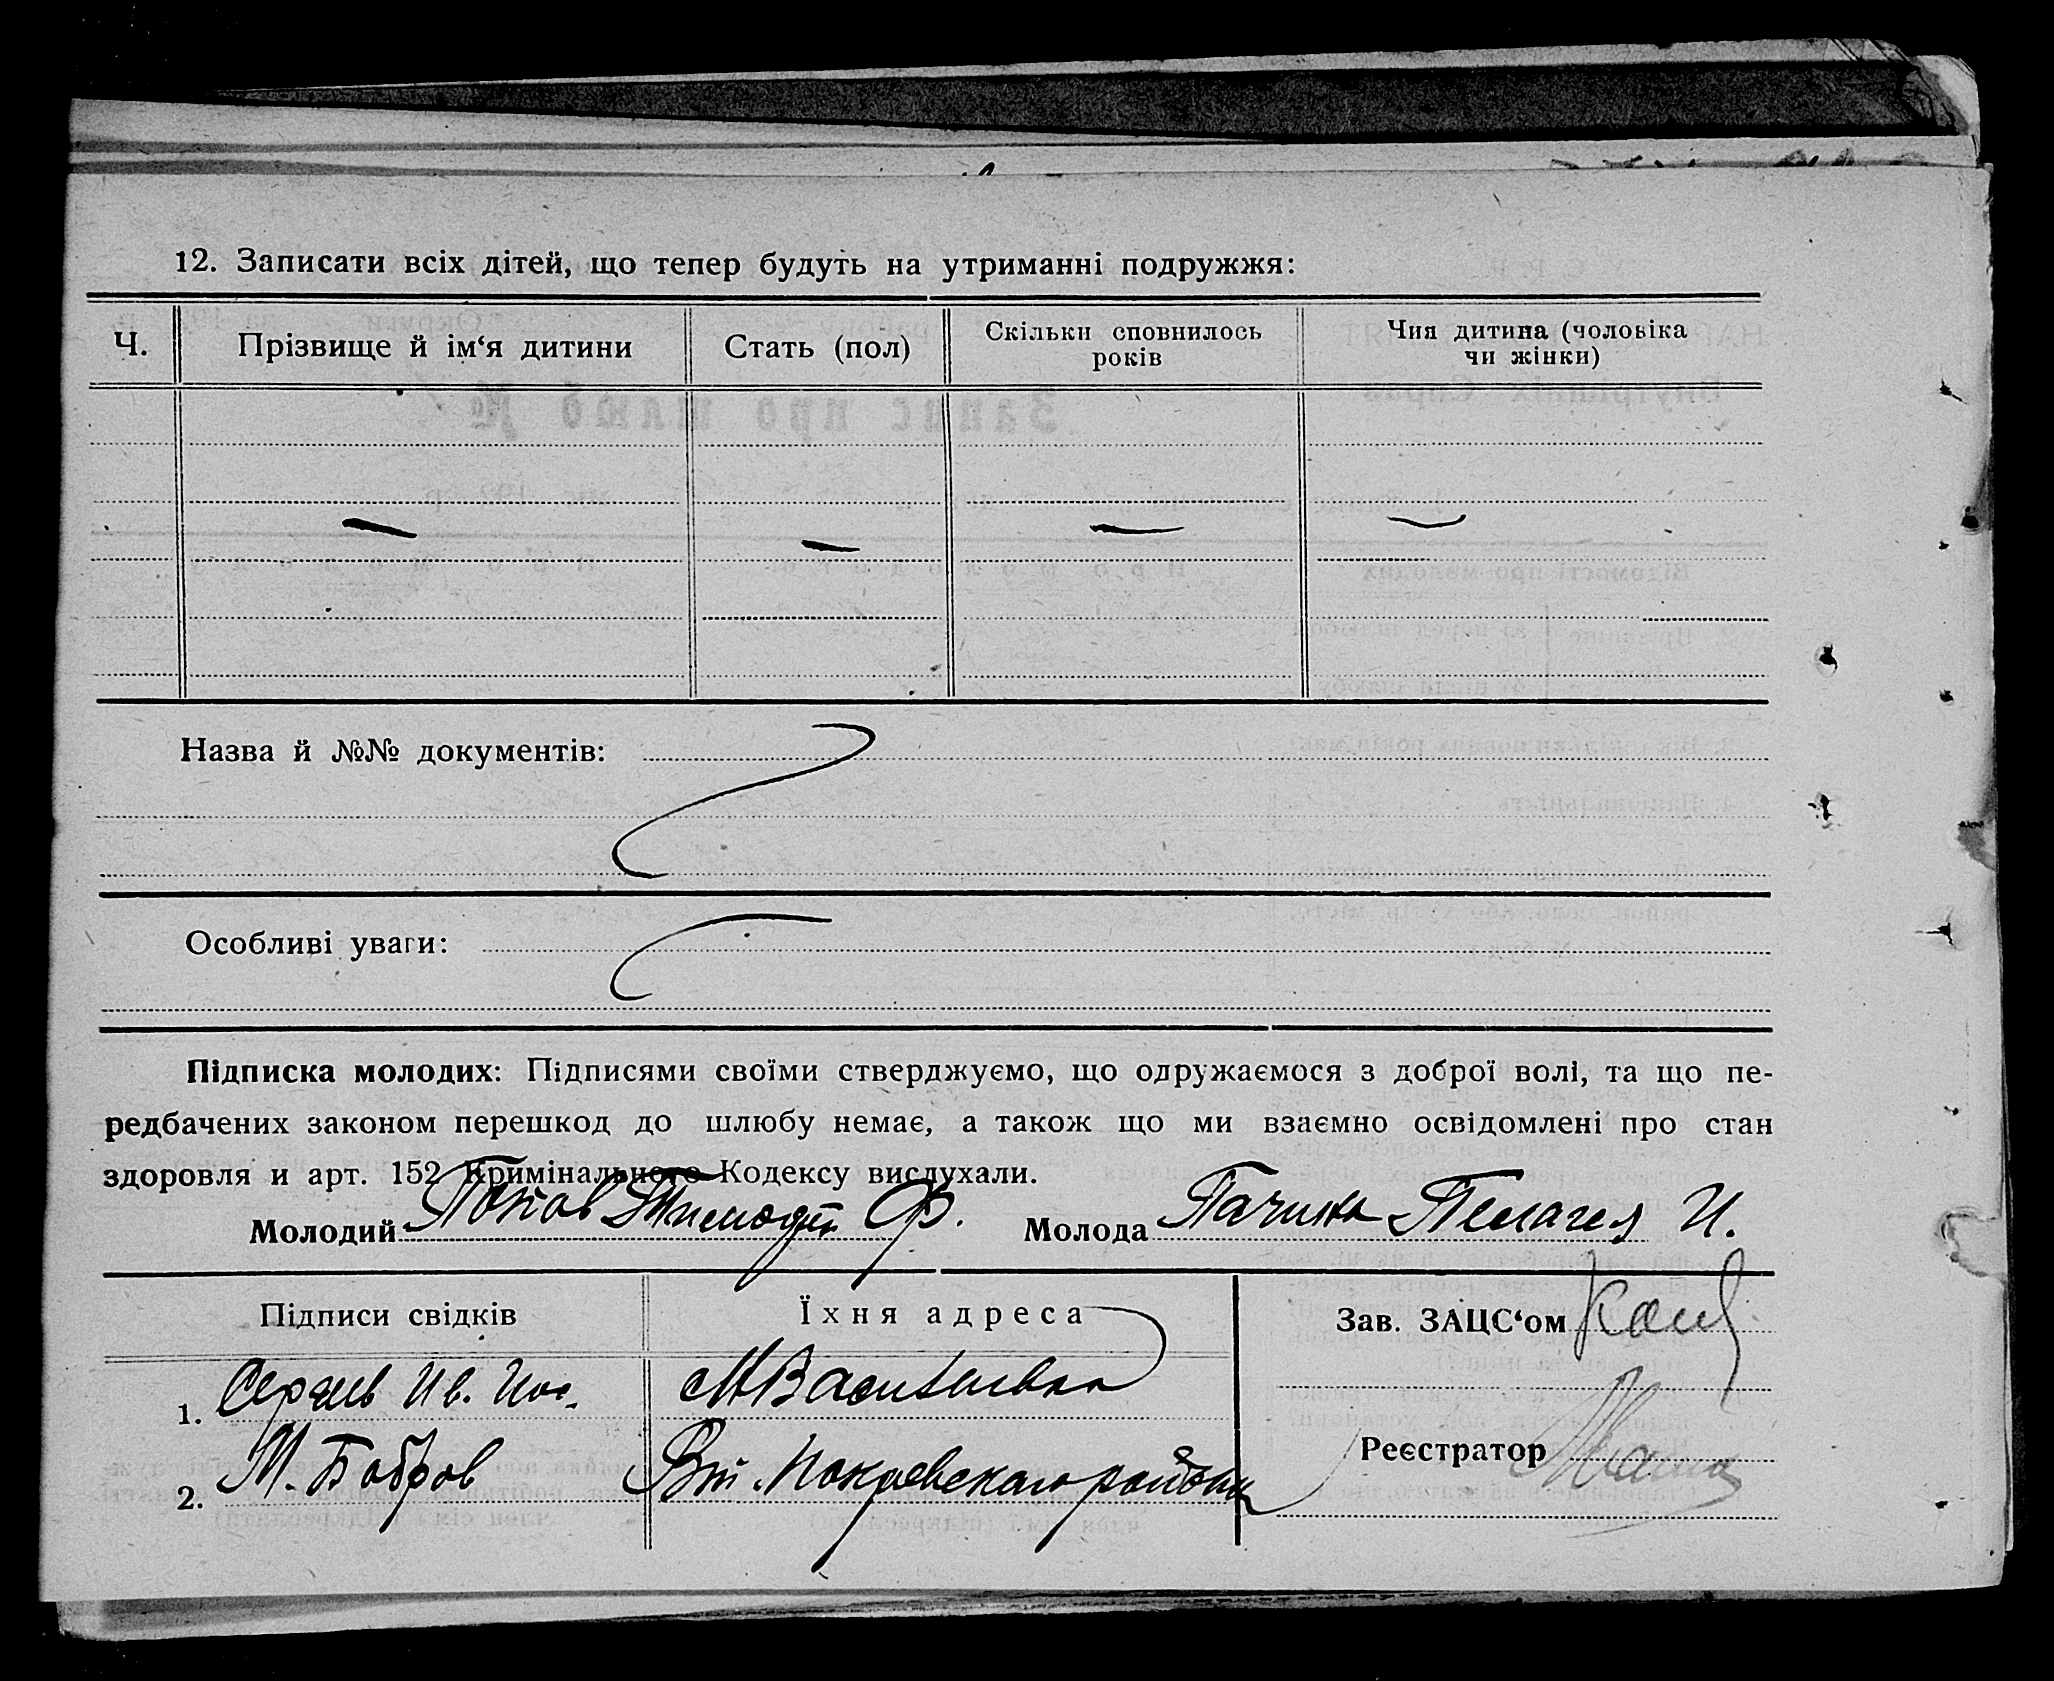 12. Записати всіх дітей, що тепер будуть на утриманні подружжя:
Ч. Прізвище й ім‘я дитини Стать (пол) Скільки сповнилось років Чия дитина (чоловіка чи жінки)
Назва й №№ документів:
Особливі уваги:
Підписка молодих: Підписями своїми стверджуємо, що одружаємося з доброї волі, та що пе-
редбачених законом перешкод до шлюбу немає, а також що ми взаємно освідомлені про стан
здоровля и арт. 152 Кримінального Кодексу вислухали.
Молодий Попов Тимофей Ф. Молода Пачина Пелагея И.
Підписи свідків Їхня адреса Зав. ЗАЦС‘ом
1. Сергеев Ив. М Васильевка
2. М. Бобров Покровского района Реєстратор